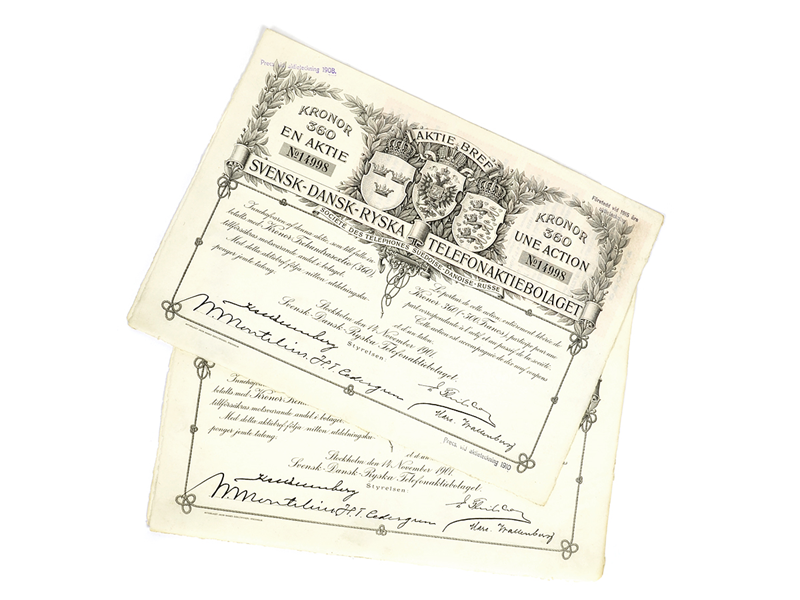 Pres. vid aktieteckning 1908.
AKTIE BREF
KRONOR
360
EN AKTIE
No 14998
Företedt vid 1915 års
KRONOR
360
UNE ACTION
No 14998
SVENSK-DANSK-RYSKA TELEFONAKTIEBOLAGET
SOCIÉTÉ DES TÉLÉPHONES SUÉDOISE-DANOISE-RUSSE
Innehafvaren af denna aktie, som till fullo är
betalts med Kronor Trehundrasextio (360)
tillförsäkras motsvarande andel i bolaget.
Med detta aktiebref följa nitton utdelningsku-
ponger jemte talong.
Le porteur de cette action, entièrement libérée de
Kronor 360 (=500 Francs), participe pour une
part correspondante à l'actif et au passif de la société.
Cette action est accompagnée de dix neuf coupons
et d'un talon.
Stockholm den 14 November 1901.
Svensk-Dansk-Ryska-Telefonaktiebolaget.
Styrelsen:
W. Montelius H. T. Cedergren
Marc. Wallenberg
Pres. vid aktieteckning 1910
Innehafvaren
betalts med Kronor Trehu
tillförsäkras motsvarande andel i bolage
Med detta aktiebref följa nitton utdelningsku-
ponger jemte talong.
et d'un
Stockholm den 14 November 1901.
Svensk-Dansk-Ryska-Telefonaktiebolaget.
Styrelsen:
W. Montelius H. T. Cedergren
Marc. Wallenberg